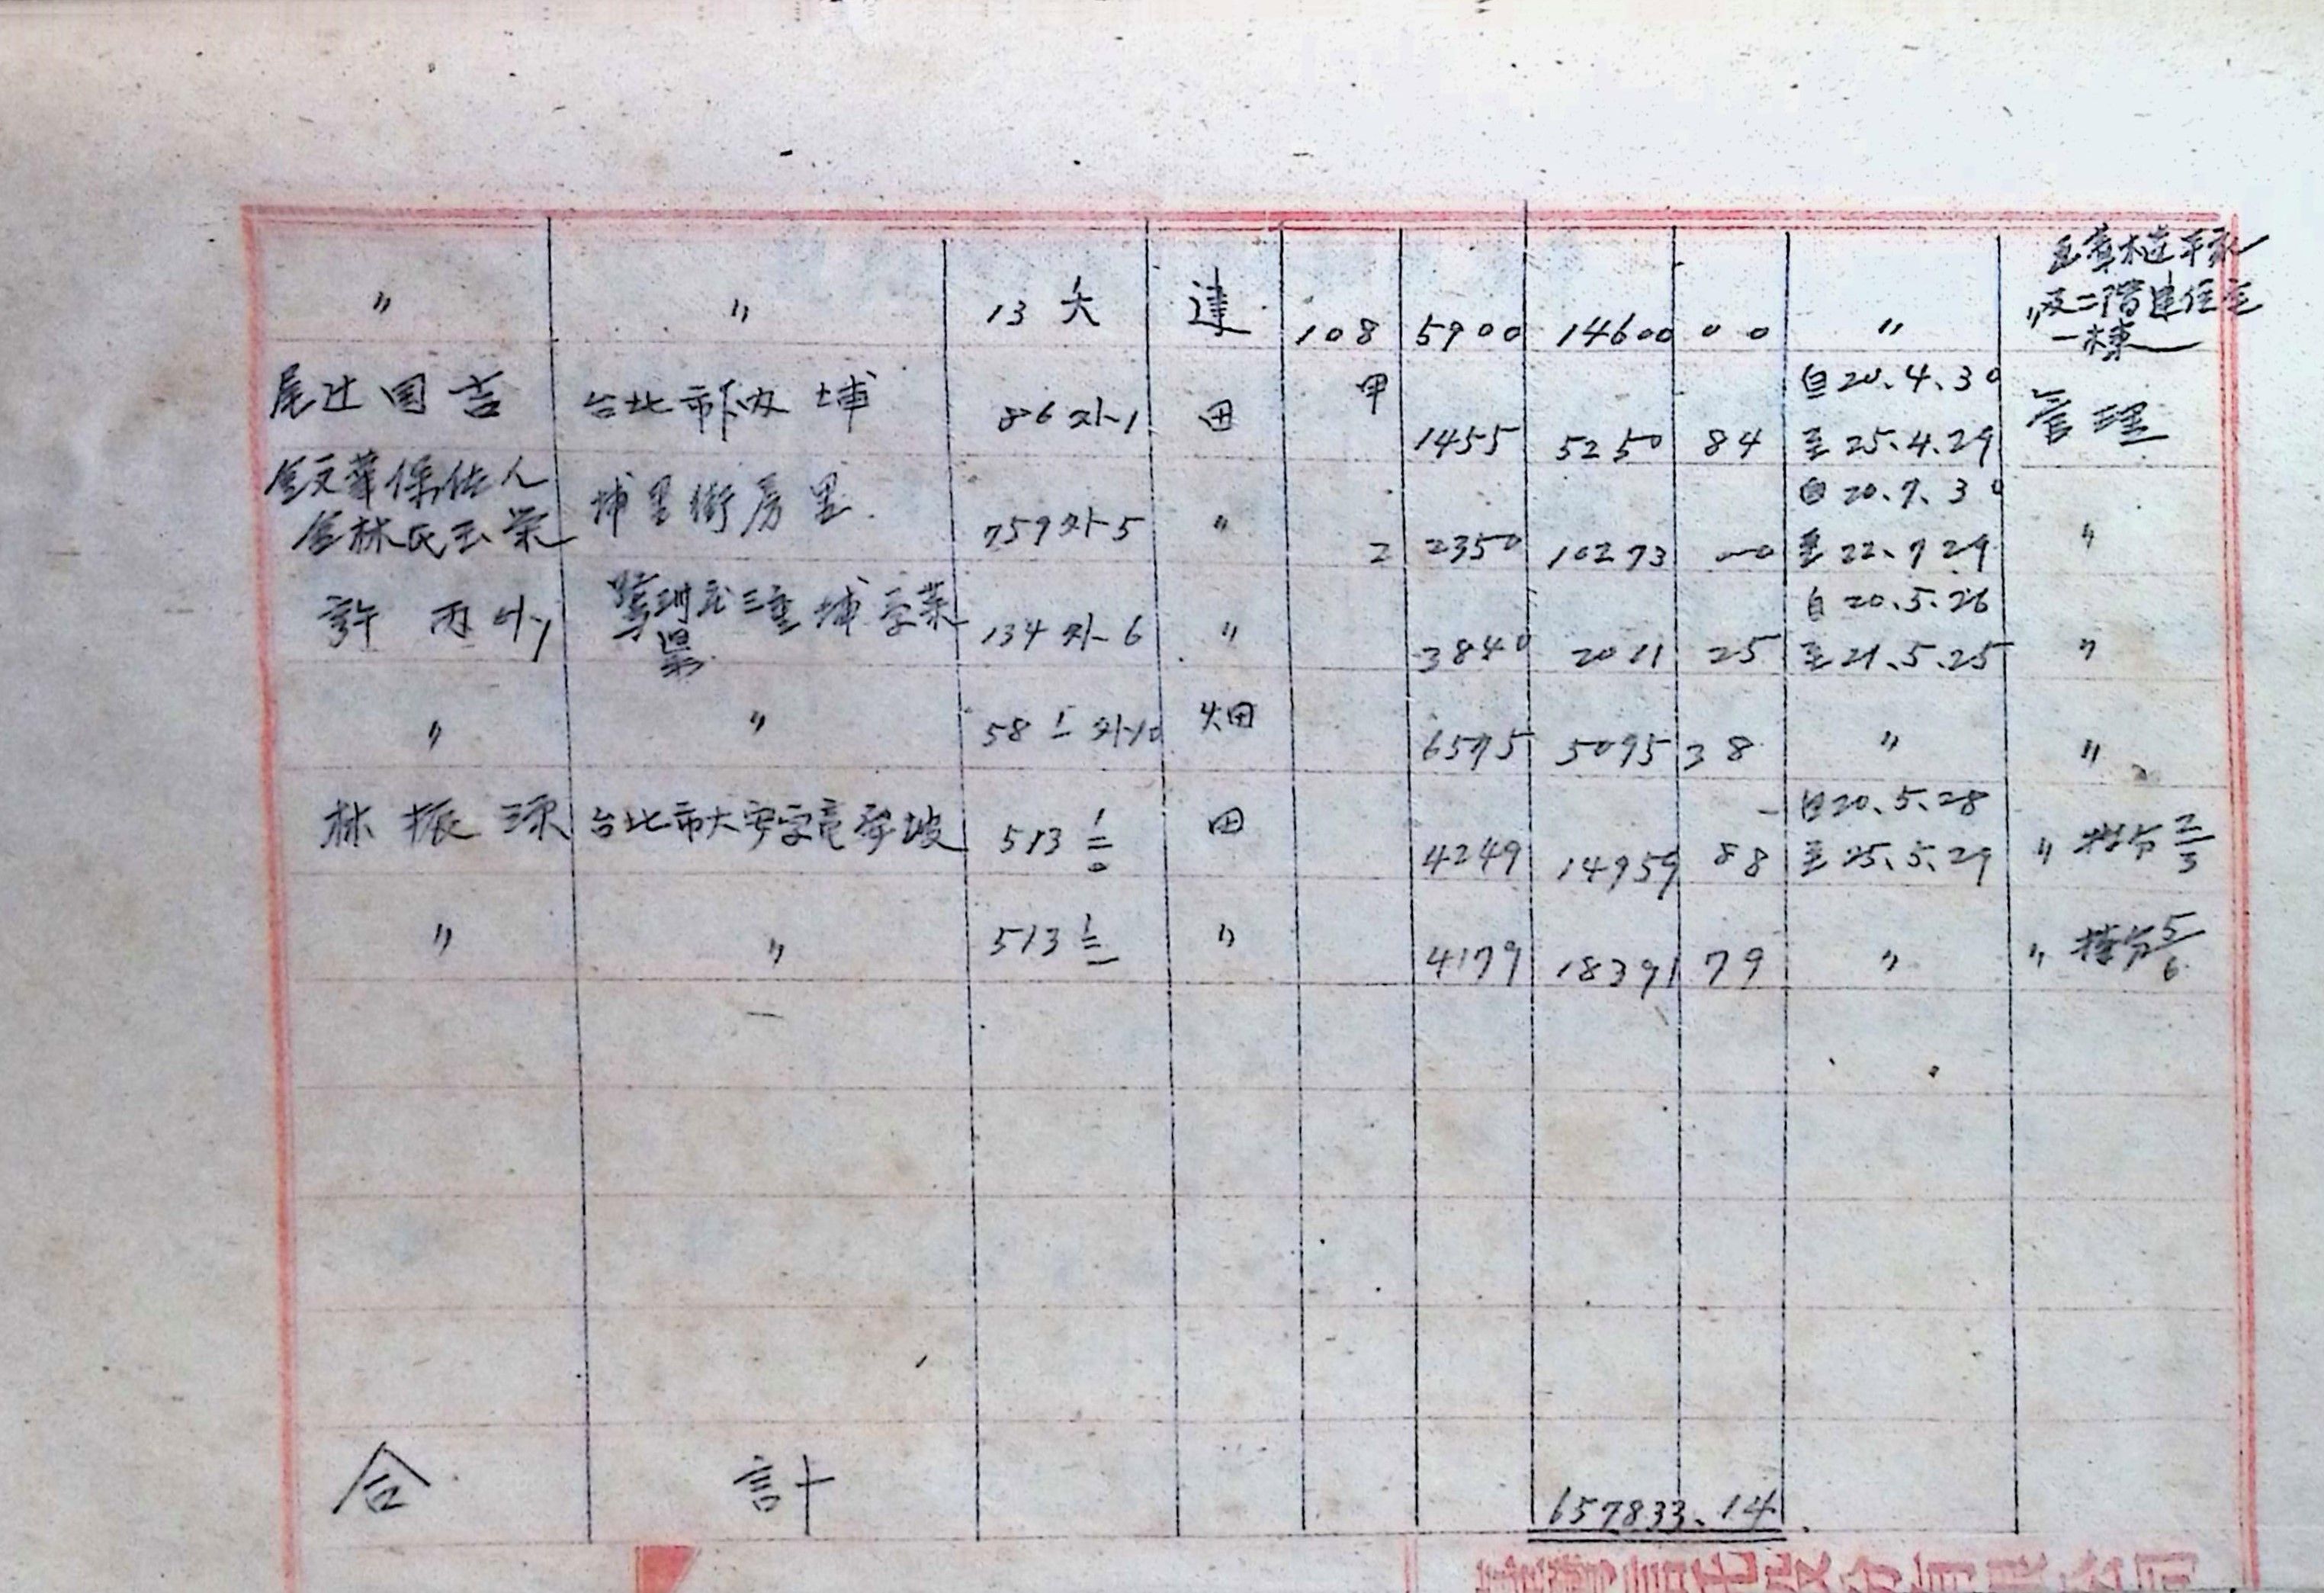 瓦葺木造平家
〃 〃 13 欠 建 108 5900 14600 00 〃 〃及二階建住宅
一棟
尾辻国吉 台北市下内埔 86外1 田 甲 1455 5250 84 自20.4.30 至25.4.29 管理
保佐人
金林氏玉栄 埔里街房里 759外5 〃 2 2350 10273 00 自20.7.30 至22.7.29 〃
許丙 外1 三重埔 134外6 〃 3840 2011 25 自20.5.26 至21.5.25 〃
〃 〃 58 1/一 外10 畑 6575 5095 38 〃 〃
林振 台北市大安字竜 坡 513 1/二〇 田 4249 14959 88 自20.5.28 至25.5.29 〃 持分2/3
〃 〃 513 1/二一 〃 4179 18391 79 〃 〃 持分5/6
合 計 657833.14
股份有限公司